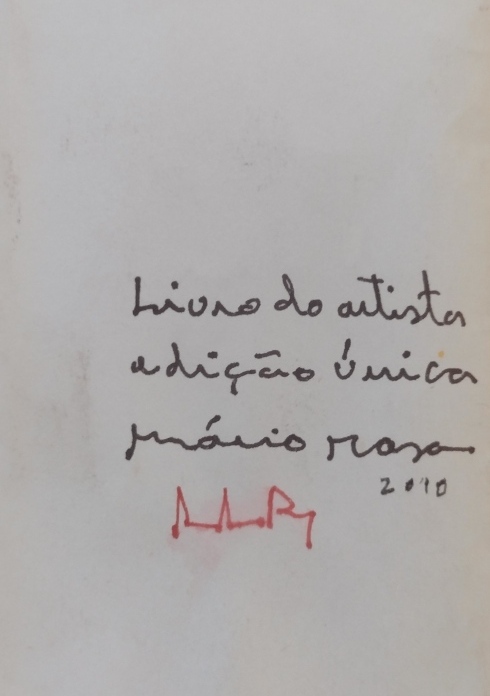 Livro do artista
edição única
mário rosa
2010